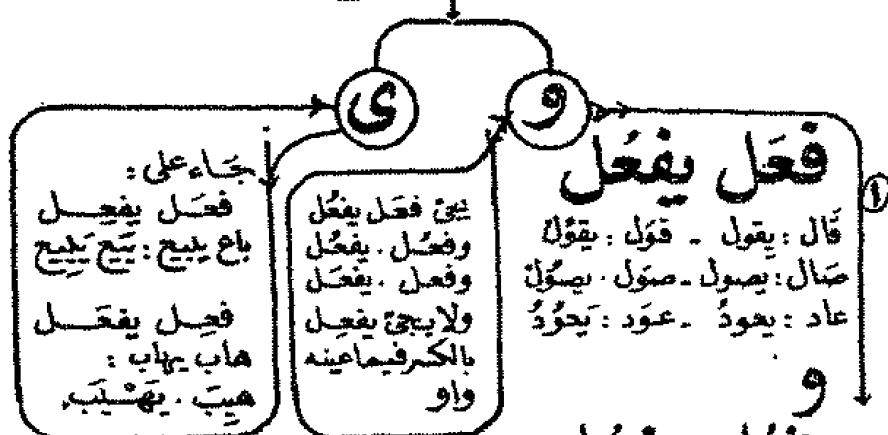 و
ى
①
فَعَل يفْعُل
قَال : يقول - قَوَل : يَقْوُلُ
صَال : يصول - صوَل . يصْوُلُ
عاد : يعودُ - عوَد : يَعْوُدُ
و
يجئ فعَل يفعُل
وفعُل . يفعُل
وفعل . يفعَل
ولا يجئ يفعِل
بالكسر فيما عينه
واو
جَاء على :
فعَل يفعِل
باع يبيع : بَيَع يَبْيِع
فعِل يفعَل
هاب يهاب :
هيِبَ . يَهْيَبَ